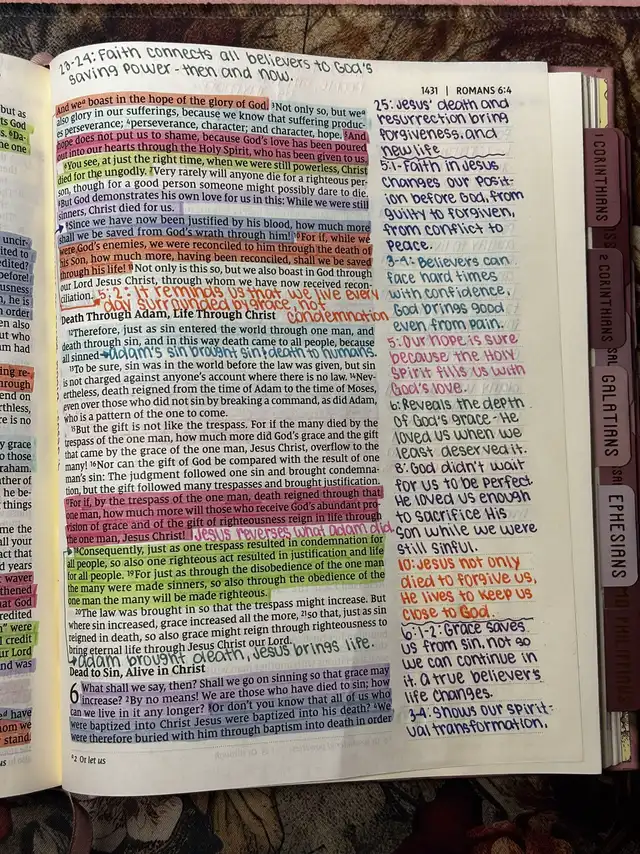 23-24: Faith connects all believers to God's
saving power - then and now.
1431 | ROMANS 6:4
And weᵃ boast in the hope of the glory of God. ³Not only so, but weᵃ
also glory in our sufferings, because we know that suffering produc-
es perseverance; ⁴perseverance, character; and character, hope. ⁵And
hope does not put us to shame, because God's love has been poured
out into our hearts through the Holy Spirit, who has been given to us.
⁶You see, at just the right time, when we were still powerless, Christ
died for the ungodly. ⁷Very rarely will anyone die for a righteous per-
son, though for a good person someone might possibly dare to die.
⁸But God demonstrates his own love for us in this: While we were still
sinners, Christ died for us.
⁹Since we have now been justified by his blood, how much more
shall we be saved from God's wrath through him! ¹⁰For if, while we
were God's enemies, we were reconciled to him through the death of
his Son, how much more, having been reconciled, shall we be saved
through his life! ¹¹Not only is this so, but we also boast in God through
our Lord Jesus Christ, through whom we have now received recon-
ciliation.
5:2: It reminds us that we live every
day surrounded by grace, not
condemnation
Death Through Adam, Life Through Christ
¹²Therefore, just as sin entered the world through one man, and
death through sin, and in this way death came to all people, because
all sinned— adam's sin brought sin & death to humans.
¹³To be sure, sin was in the world before the law was given, but sin
is not charged against anyone's account where there is no law. ¹⁴Nev-
ertheless, death reigned from the time of Adam to the time of Moses,
even over those who did not sin by breaking a command, as did Adam,
who is a pattern of the one to come.
¹⁵But the gift is not like the trespass. For if the many died by the
trespass of the one man, how much more did God's grace and the gift
that came by the grace of the one man, Jesus Christ, overflow to the
many! ¹⁶Nor can the gift of God be compared with the result of one
man's sin: The judgment followed one sin and brought condemna-
tion, but the gift followed many trespasses and brought justification.
¹⁷For if, by the trespass of the one man, death reigned through that
one man, how much more will those who receive God's abundant pro-
vision of grace and of the gift of righteousness reign in life through
the one man, Jesus Christ! Jesus reverses what adam did
¹⁸Consequently, just as one trespass resulted in condemnation for
all people, so also one righteous act resulted in justification and life
for all people. ¹⁹For just as through the disobedience of the one man
the many were made sinners, so also through the obedience of the
one man the many will be made righteous.
²⁰The law was brought in so that the trespass might increase. But
where sin increased, grace increased all the more, ²¹so that, just as sin
reigned in death, so also grace might reign through righteousness to
bring eternal life through Jesus Christ our Lord.
adam brought death, Jesus brings life.
Dead to Sin, Alive in Christ
6 What shall we say, then? Shall we go on sinning so that grace may
increase? ²By no means! We are those who have died to sin; how
can we live in it any longer? ³Or don't you know that all of us who
were baptized into Christ Jesus were baptized into his death? ⁴We
were therefore buried with him through baptism into death in order
ᵃ 2 Or let us
25: Jesus' death and
resurrection bring
forgiveness, and
new life
5:1- Faith in Jesus
changes our posit-
ion before God, from
guilty to forgiven,
from conflict to
peace.
3-4: Believers can
face hard times
with confidence,
God brings good
even from pain.
5: Our hope is sure
because the Holy
Spirit fills us with
God's love.
6: Reveals the depth
of God's grace - He
loved us when we
least deserved it.
8: God didn't wait
for us to be perfect
He loved us enough
to sacrifice His
son while we were
still sinful.
10: Jesus not only
died to forgive us,
He lives to keep us
close to God.
6:1-2: Grace saves
us from sin, not so
we can continue in
it. a true believer's
life changes.
3-4: shows our spirit-
ual transformation.
1 CORINTHIANS
2 CORINTHIANS
GALATIANS
EPHESIANS